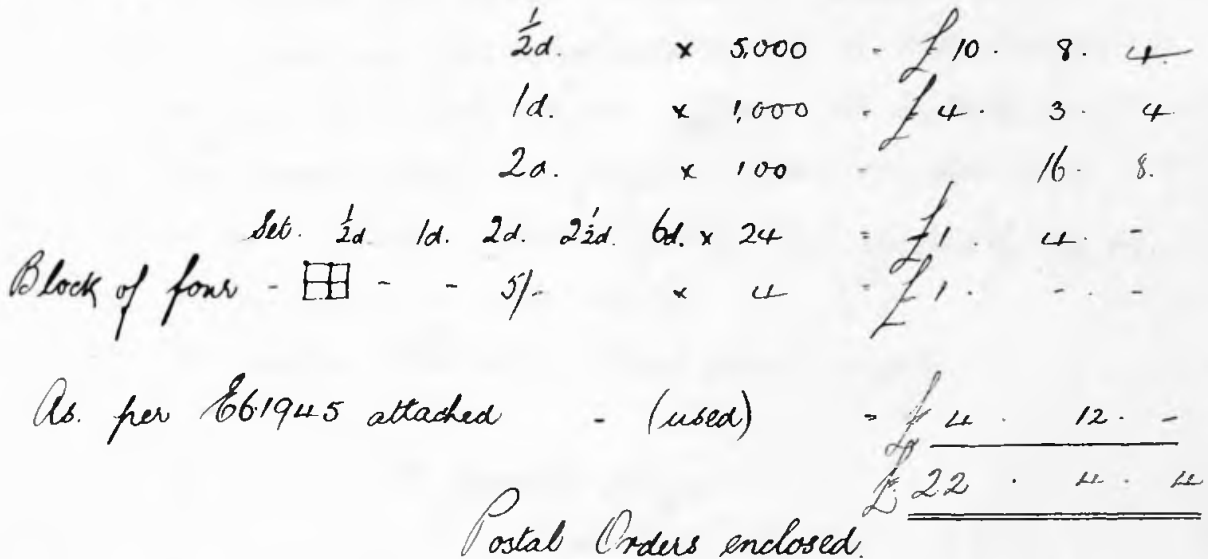 ½d. × 5,000 - £10. 8. 4.
1d. × 1,000 - £4. 3. 4
2d. × 100 - 16. 8.
Set. ½d. 1d. 2d. 2½d. 6d. × 24 = £1. 4. -
Block of four - - - 5/- × 4 - £1. - -
As. per E61945 attached - (used) = £4. 12. -
£22. 4. 4
Postal Orders enclosed.